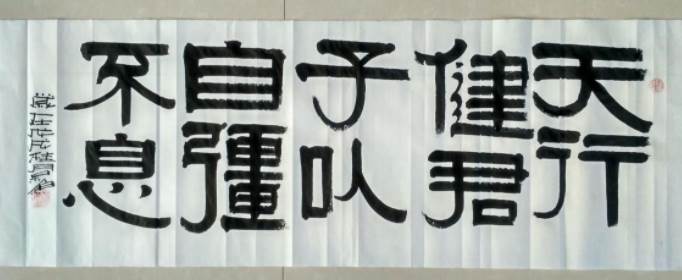 天行
健君
子以
自彊
不息